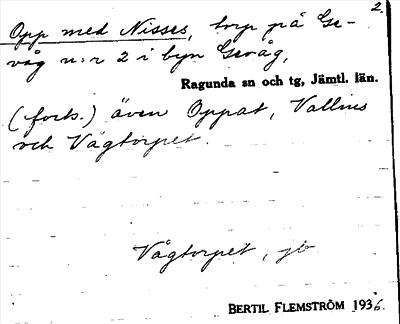 2.
Opp med Nisses, torp på Ge-
våg n:r 2 i byn Gevåg,
Ragunda sn och tg, Jämtl. län.
(forts.) även Oppat, Vallins
och Vågtorpet.
Vågtorpet, jb
BERTIL FLEMSTRÖM 1936.